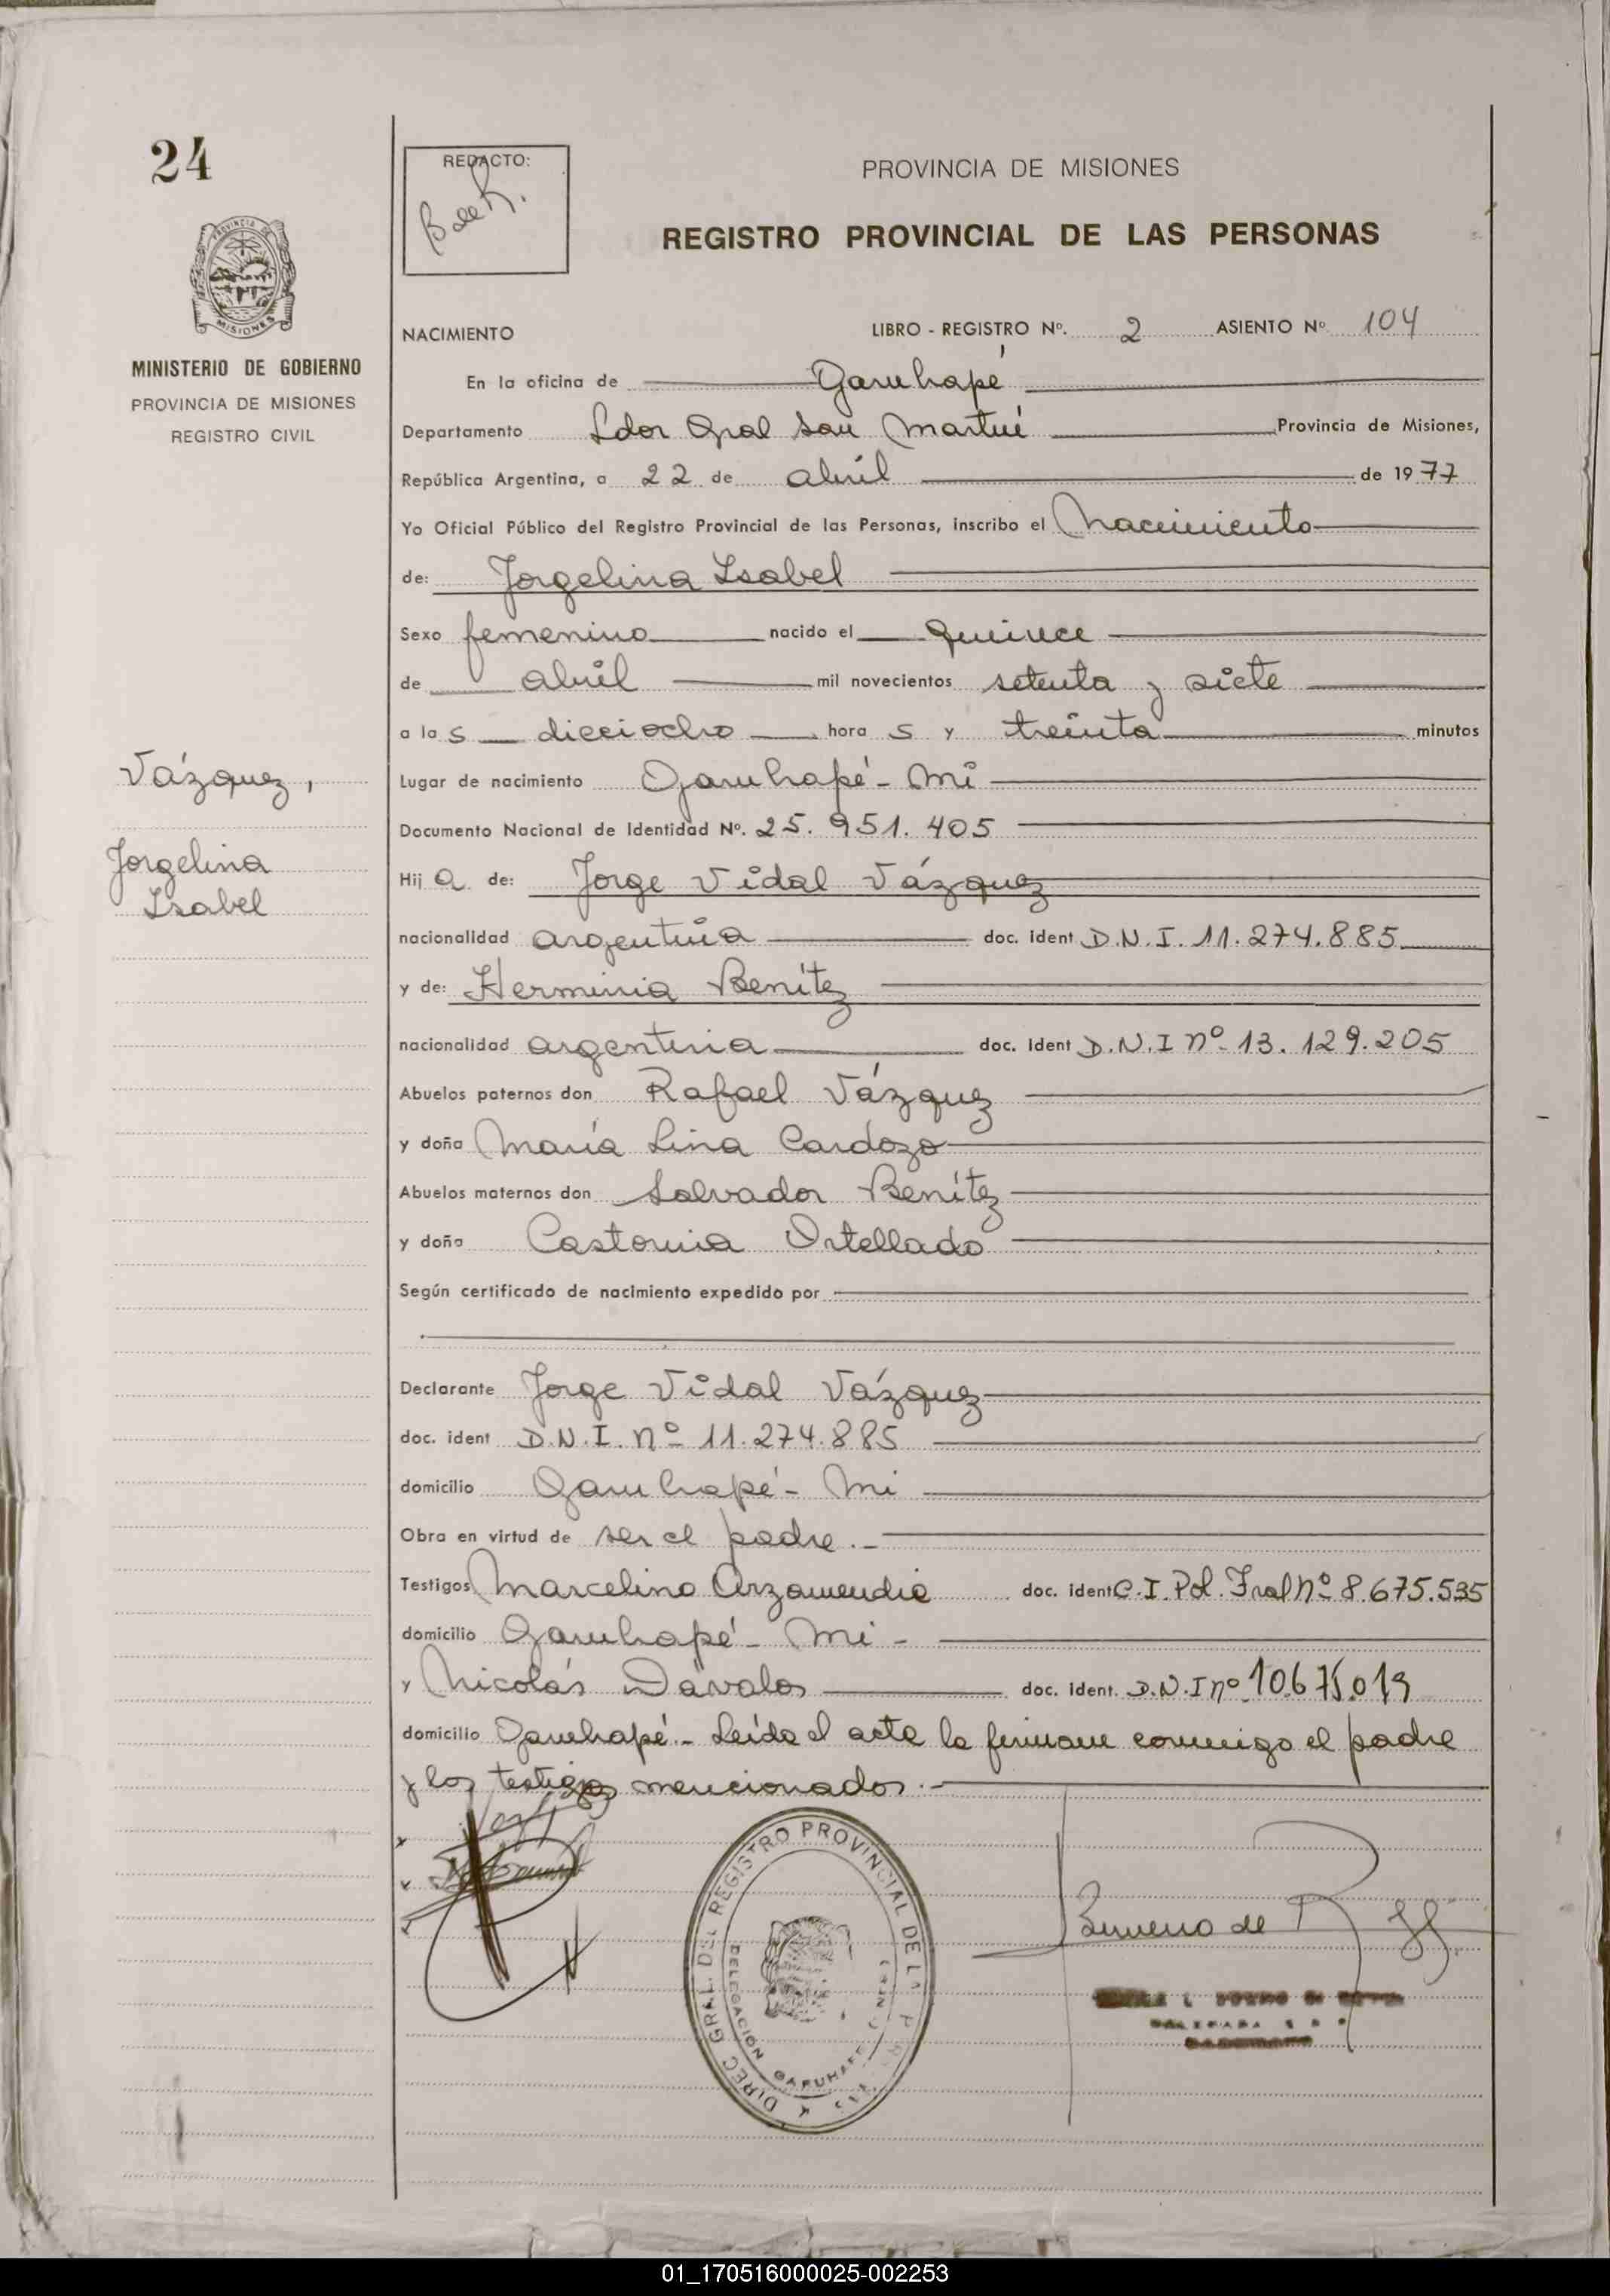 24
REDACTO:
B de R.
PROVINCIA DE MISIONES
REGISTRO PROVINCIAL DE LAS PERSONAS
PROVINCIA DE
MISIONES
MINISTERIO DE GOBIERNO
PROVINCIA DE MISIONES
REGISTRO CIVIL
NACIMIENTO LIBRO - REGISTRO Nº. 2 ASIENTO Nº 104
En la oficina de Garuhapé
Departamento Ldor Gral San Martín Provincia de Misiones,
República Argentina, a 22 de abril de 1977
Yo Oficial Público del Registro Provincial de las Personas, inscribo el Nacimiento
de: Jorgelina Isabel
Sexo femenino nacido el quince
de abril mil novecientos setenta y siete
a las dieciocho horas y treinta minutos
Vázquez,
Jorgelina
Isabel
Lugar de nacimiento Garuhapé - Mi
Documento Nacional de Identidad Nº. 25.951.405
Hija de: Jorge Vidal Vázquez
nacionalidad argentina doc. ident D.N.I. 11.274.885
y de: Herminia Benítez
nacionalidad argentina doc. ident D.N.I nº 13.129.205
Abuelos paternos don Rafael Vázquez
y doña María Lina Cardozo
Abuelos maternos don Salvador Benítez
y doña Castorina Ortellado
Según certificado de nacimiento expedido por
Declarante Jorge Vidal Vázquez
doc. ident D.N.I. nº 11.274.885
domicilio Garuhapé - Mi
Obra en virtud de ser el padre.-
Testigos Marcelino Arzamendia doc. ident C.I. Pol. Fral nº 8.675.535
domicilio Garuhapé - Mi -
y Nicolás Dávalos doc. ident. D.N.I nº 10.675.019
domicilio Garuhapé - Leída el acta la firman conmigo el padre
y los testigos mencionados.-
DIREC GRAL. DEL REGISTRO PROVINCIAL DE LA
DELEGACIÓN GARUHAPE
01_170516000025-002253